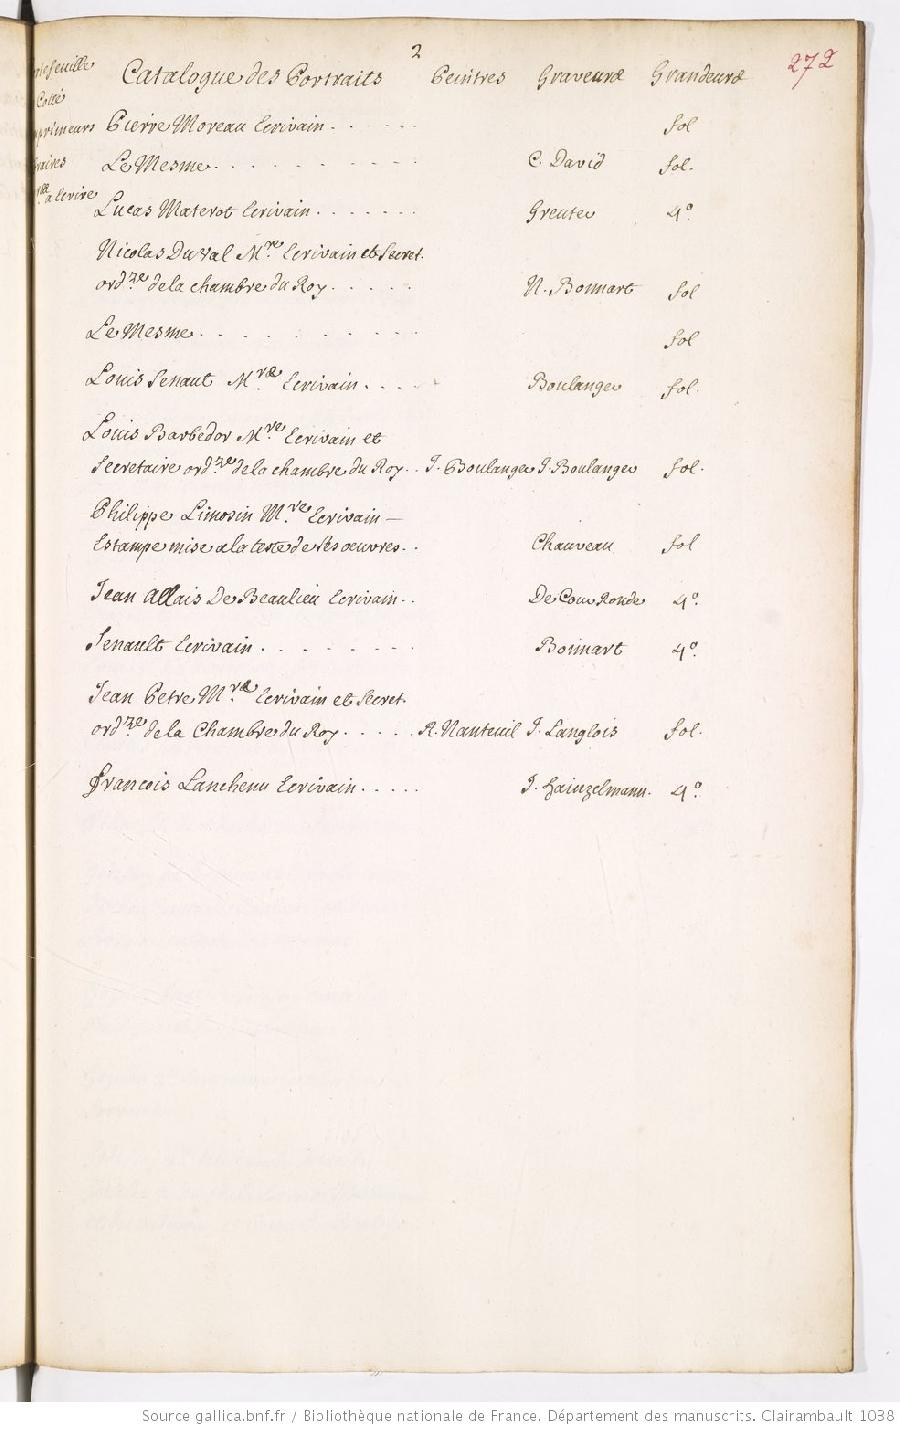 2
272
Catalogue des Portraits Peintres Graveurs Grandeurs
Cotté
a lecrire
Pierre Moreau Ecrivain . . . . . fol
Le Mesme . . . . . . . . . . C. David fol.
Lucas Materot Ecrivain . . . . . . . Greuter 4º
Nicolas Duval Mre. Ecrivain et Secret.
ordre. de la chambre du Roy . . . . . N. Bonnart fol
Le Mesme . . . . . . . . . . fol
Louis Senault Mre. Ecrivain . . . . Boulanger fol.
Louis Barbedor Mre. Ecrivain et
Secretaire ordre. de la chambre du Roy . . J. Boulanger J. Boulanger fol.
Philippe Limosin Mre. Ecrivain —
Estampe mise a la teste de ses oeuvres . . Chauveau fol
Jean Allais De Beaulieu Ecrivain . . 4º.
Senault Ecrivain . . . . . . . . Bonnart 4º.
Jean Petre Mre. Ecrivain et Secret.
ordre. de la Chambre du Roy . . . . . R. Nanteuil J. Langlois fol.
François Ecrivain . . . . . J. Hainzelmann. 4º.
Source gallica.bnf.fr / Bibliothèque nationale de France. Département des manuscrits. Clairambault 1038